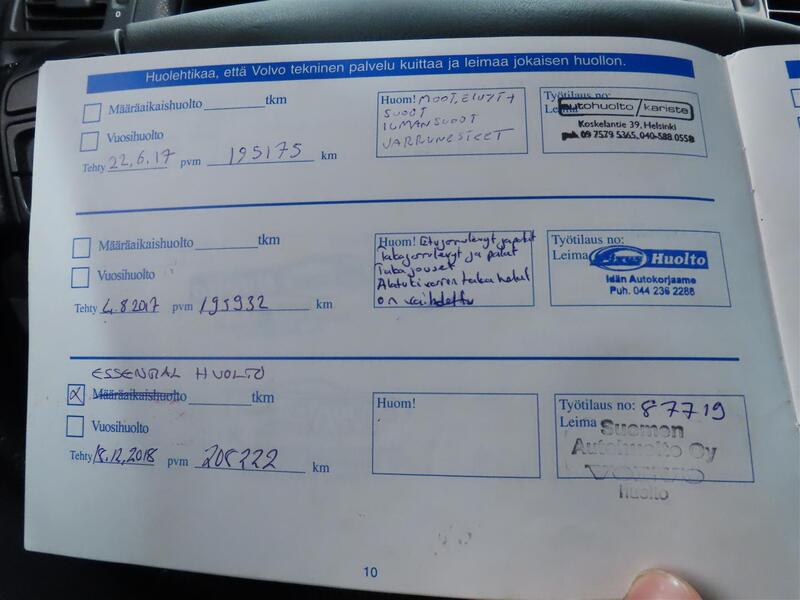 Huolehtikaa, että Volvo tekninen palvelu kuittaa ja leimaa jokaisen huollon.
Määräaikaishuolto tkm
Vuosihuolto
Tehty 22.6.17 pvm 195175 km
Huom! MOOT.ÖLJYT+
SUODT
ILMANSUODT
JARRUNESTEET
Työtilaus no:
Leima autohuolto/kariste
Koskelantie 39, Helsinki
puh. 09 7579 5365, 040-588 0558
Määräaikaishuolto tkm
Vuosihuolto
Tehty 4.8.2017 pvm 195932 km
Huom! Etujarrulevyt ja palat
Takajarrulevyt ja palat
Takajouset
Alatukivarren takahelat
on vaihdettu
Työtilaus no:
Leima Huolto
Idän Autokorjaame
Puh. 044 236 2288
ESSENTIAL HUOLTO
Määräaikaishuolto tkm
Vuosihuolto
Tehty 18.12.2018 pvm 208222 km
Huom!
Työtilaus no: 87719
Leima Suomen
Autohuolto Oy
VOLVO
Huolto
10